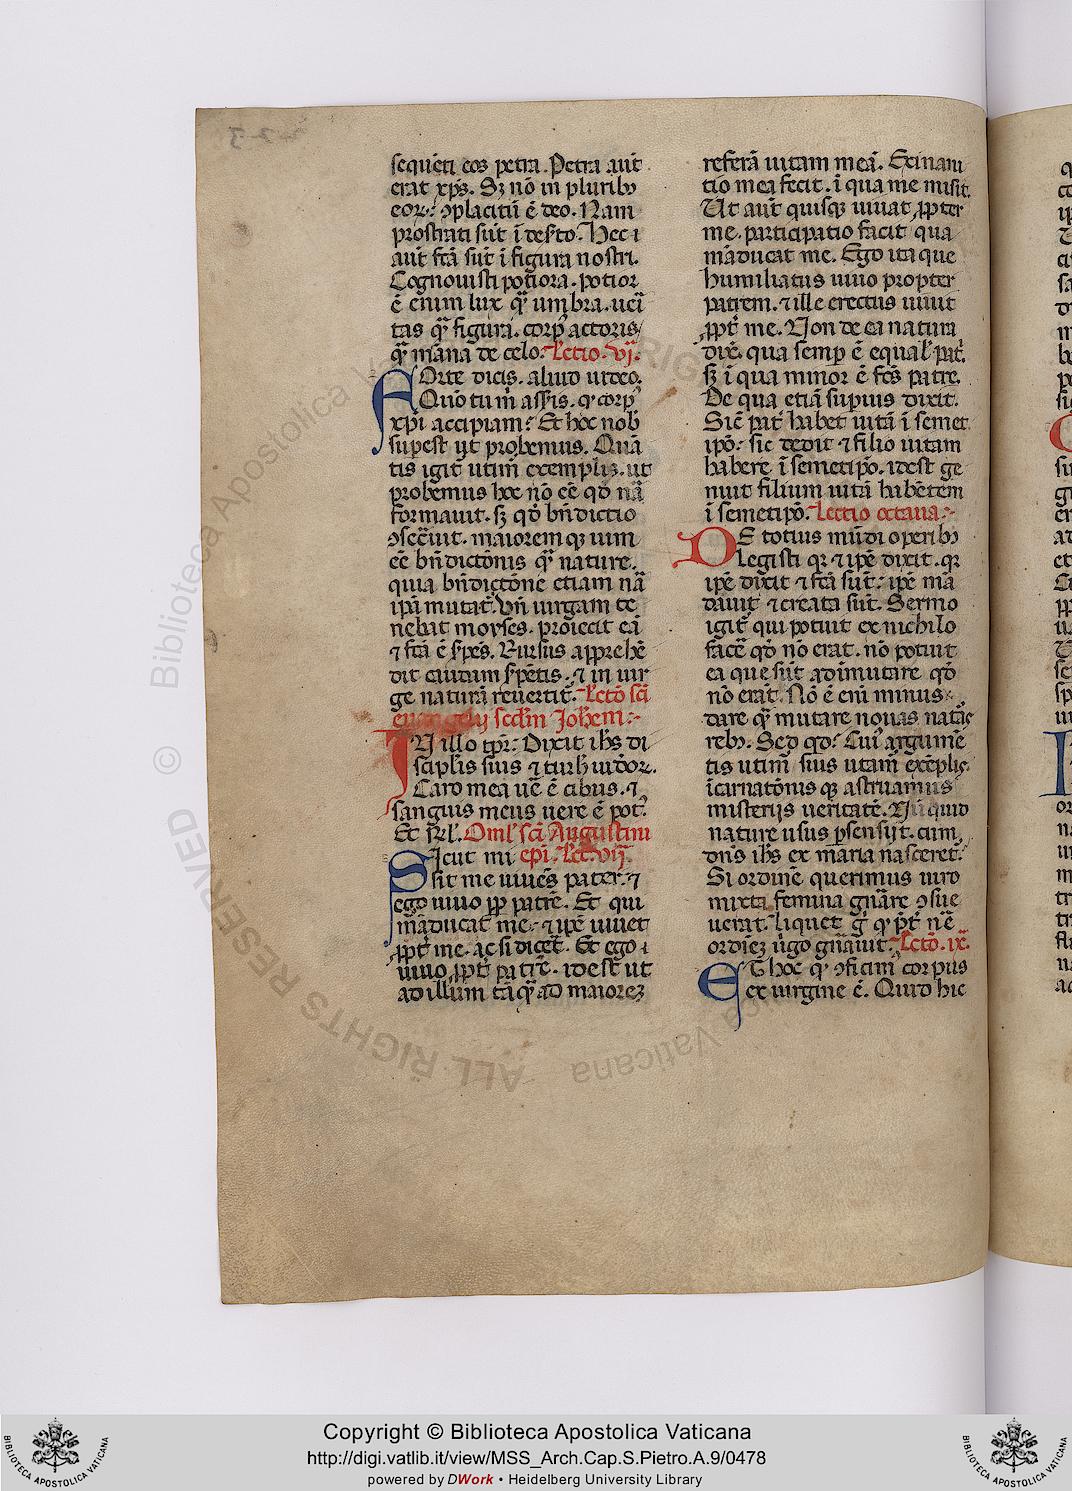 sequẽti eos petra. Petra aut̃
erat xp̃s. Sꝫ nõ in pluribꝰ
eorꝝ ↄplacitũ ẽ deo. Nam
prostrati sũt ĩ deserto. Hec
aut̃ fcã sũt ĩ figura nostri.
Cognouisti potiora. potior
ẽ enim lux qᷓ umbra. ueri
tas qᷓ figura. corpꝰ actoris
qᷓ manna de celo. Lectio. vj.
Forte dicis. aliud uideo.
Quõ tu m̃ asseris. ꝙ corpꝰ
xp̃i accipiam? Et hoc nob̃
supest ut probemus. Quã
tis igit̃ utim̃ exemplis. ut
probemus hoc nõ eẽ qd̃ nã
formauit. sꝫ qd̃ bñdictio
ↄsecrauit. maiorem qꝫ uim
eẽ bñdictõnis qᷓ nature.
quia bñdictõne etiam nã
ipã mutat̃. Vñ uirgam te
nebat moyses. proiecit eã
⁊ fcã ẽ serpẽs. Rursus apprehẽ
dit caudam serpẽtis. ⁊ in uir
ge naturã reuertit̃. Lectõ sc̃i
euangelij scdm Johem:-
IN illo tp̃r̃: Dixit ih̃s di
scipulis suis ⁊ turbis iudeorꝝ.
Caro mea uẽ ẽ cibus. ⁊
sanguis meus uere ẽ potꝰ.
Et rel̃. Oml̃ sc̃i Augustini
Sicut mi epĩ. Lec̃. vij.
sit me uiuẽs pater. ⁊
ego uiuo pp̃ patrẽ. Et qui
mãducat me. ⁊ ipẽ uiuet
ꝓpt̃ me. ac si dicẽt. Et ego
uiuo ꝓpt̃ patrẽ. idest ut
ad illum tãqᷓ ad maiorez
referã uitam meã. Exinani
tio mea fecit. ĩ qua me misit.
Ut aut̃ quisqꝫ uiuat ꝓpter
me. participatio facit qua
mãducat me. Ego itaque
humiliatus uiuo propter
patrem. ⁊ ille erectus uiuit
ꝓpt̃ me. Non de ea natura
dix̃. qua semp̃ ẽ equal̃ pat̃.
sꝫ ĩ qua minor ẽ fcs̃ patre.
De qua etiã supius dixit.
Sic̃ pat̃ habet uitã ĩ semet
ipõ: sic dedit ⁊ filio uitam
habere ĩ semetipõ. idest ge
nuit filium uitã habẽtem
ĩ semetipõ. Lectio octaua:-
DE totius mũdi operibꝰ
legisti qꝛ ⁊ ipẽ dixit. qꝛ
ipẽ dixit ⁊ fcã sũt: ipẽ mã
dauit ⁊ creata sũt. Sermo
igit̃ qui potuit ex nichilo
facẽ qd̃ nõ erat. nõ potuit
ea que sũt ad ĩmutare qd̃
nõ erãt. Nõ ẽ eni minus
dare qᷓ mutare nouas natãs
rebꝰ. Sed qd̃? Cui argumẽ
tis utim̃ suis utam̃ exẽplis.
ĩcarnatõnis qꝫ astruamus
misterijs ueritatẽ. Nũquid
nature usus p̃sensijt. cum
dñs ih̃s ex maria nasceret̃.
Si ordinẽ querimus uiro
mixta femina gñare ↄsue
uerat. liquet g̃ ꝙ p̃t̃ nẽ
ordiẽz ũgo gñauit. Lectõ. ix.
ET hoc ꝙ ↄficim̃ corpus
ex uirgine ẽ. Quid hic
Copyright © Biblioteca Apostolica Vaticana
http://digi.vatlib.it/view/MSS_Arch.Cap.S.Pietro.A.9/0478
powered by DWork • Heidelberg University Library
BIBLIOTECA APOSTOLICA VATICANA
BIBLIOTECA APOSTOLICA VATICANA
© Biblioteca Apostolica Vaticana
ALL RIGHTS RESERVED